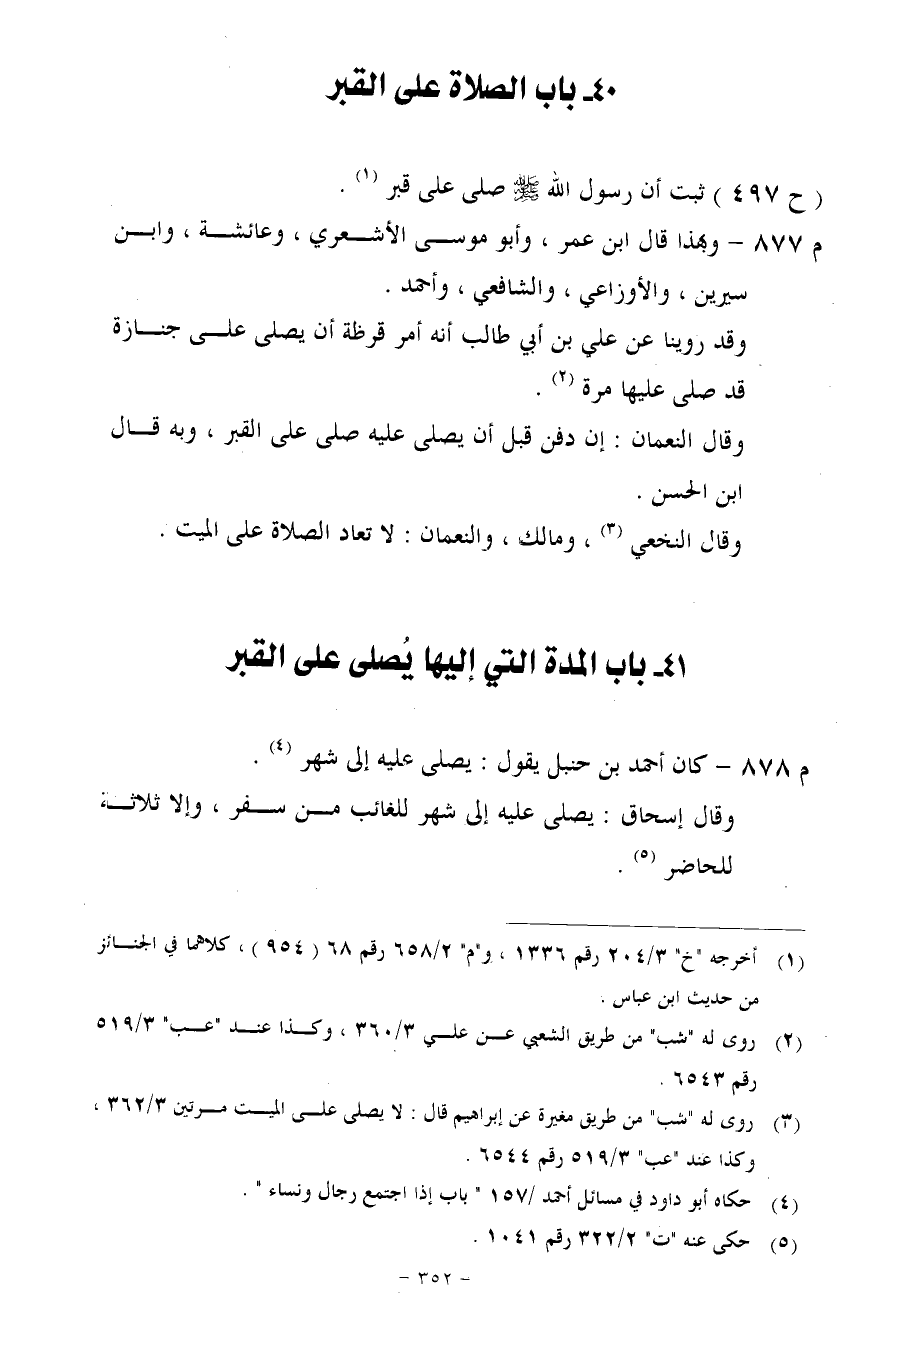 ٤٠ـ باب الصلاة على القبر
( ح ٤٩٧ ) ثبت أن رسول الله ﷺ صلى على قبر (١) .
م ٨٧٧ – وبهذا قال ابن عمر ، وأبو موسى الأشعري ، وعائشة ، وابن
سيرين ، والأوزاعي ، والشافعي ، وأحمد .
وقد روينا عن علي بن أبي طالب أنه أمر قرظة أن يصلى على جنازة
قد صلى عليها مرة (٢) .
وقال النعمان : إن دفن قبل أن يصلى عليه صلى على القبر ، وبه قال
ابن الحسن .
وقال النخعي (٣) ، ومالك ، والنعمان : لا تعاد الصلاة على الميت .
٤١ـ باب المدة التي إليها يُصلى على القبر
م ٨٧٨ – كان أحمد بن حنبل يقول : يصلى عليه إلى شهر (٤) .
وقال إسحاق : يصلى عليه إلى شهر للغائب من سفر ، وإلا ثلاثة
للحاضر (٥) .
(١) أخرجه "خ" ٢٠٤/٣ رقم ١٣٣٦ ، و"م" ٦٥٨/٢ رقم ٦٨ ( ٩٥٤ ) ، كلاهما في الجنائز
من حديث ابن عباس .
(٢) روى له "شب" من طريق الشعبي عن علي ٣٦٠/٣ ، وكذا عند "عب" ٥١٩/٣
رقم ٦٥٤٣ .
(٣) روى له "شب" من طريق مغيرة عن إبراهيم قال : لا يصلى على الميت مرتين ٣٦٢/٣ ،
وكذا عند "عب" ٥١٩/٣ رقم ٦٥٤٤ .
(٤) حكاه أبو داود في مسائل أحمد /١٥٧ " باب إذا اجتمع رجال ونساء " .
(٥) حكى عنه "ت" ٣٢٢/٢ رقم ١٠٤١ .
– ٣٥٢ –